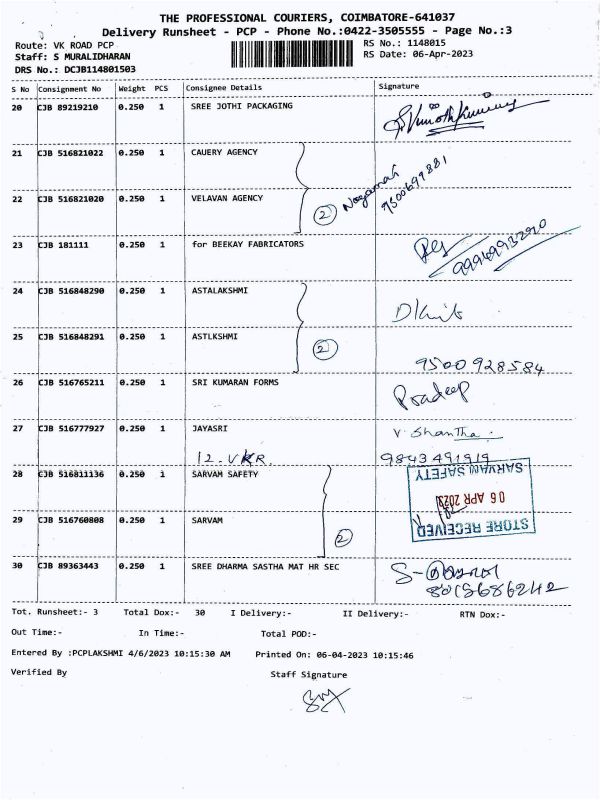 THE PROFESSIONAL COURIERS, COIMBATORE-641037
Delivery Runsheet - PCP - Phone No.:0422-3505555 - Page No.:3
Route: VK ROAD PCP
Staff: S MURALIDHARAN
DRS No.: DCJB114801503
RS No.: 1148015
RS Date: 06-Apr-2023
S No Consignment No Weight PCS Consignee Details Signature
20 CJB 89219210 0.250 1 SREE JOTHI PACKAGING
21 CJB 516821022 0.250 1 CAUERY AGENCY
22 CJB 516821020 0.250 1 VELAVAN AGENCY
2 9500699881
23 CJB 181111 0.250 1 for BEEKAY FABRICATORS
9994993290
24 CJB 516848290 0.250 1 ASTALAKSHMI
25 CJB 516848291 0.250 1 ASTLKSHMI
2
9500928584
26 CJB 516765211 0.250 1 SRI KUMARAN FORMS Pradeep
27 CJB 516777927 0.250 1 JAYASRI V. Shantha
12. V.K.R. 9843491919
28 CJB 516811136 0.250 1 SARVAM SAFETY
29 CJB 516760808 0.250 1 SARVAM
2
STORE RECEIVED
06 APR 2023
SARVAM SAFETY
30 CJB 89363443 0.250 1 SREE DHARMA SASTHA MAT HR SEC
8015686242
Tot. Runsheet:- 3 Total Dox:- 30 I Delivery:- II Delivery:- RTN Dox:-
Out Time:- In Time:- Total POD:-
Entered By :PCPLAKSHMI 4/6/2023 10:15:30 AM Printed On: 06-04-2023 10:15:46
Verified By Staff Signature